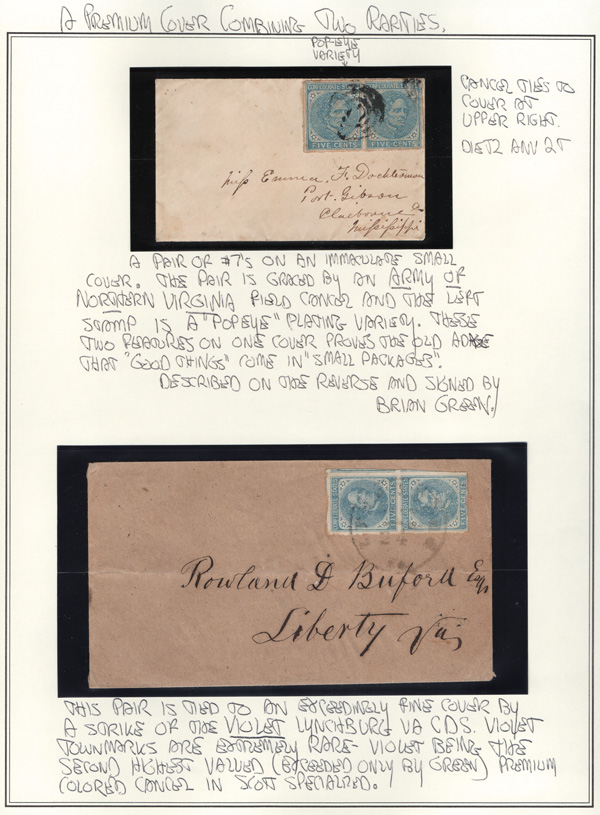 A PREMIUM COVER COMBINING TWO RARITIES.
POP-EYE
VARIETY
CANCEL TIES TO
COVER AT
UPPER RIGHT.
DIETZ ANV 2T
FIVE CENTS
FIVE CENTS
Miss Emma F. Dochterman
Port Gibson
Claiborne Co
Mississippi
A PAIR OF #7'S ON AN IMMACULATE SMALL
COVER. THE PAIR IS GRACED BY AN ARMY OF
NORTHERN VIRGINIA FIELD CANCEL AND THE LEFT
STAMP IS A "POPEYE" PLATING VARIETY. THESE
TWO FEATURES ON ONE COVER PROVES THE OLD ADAGE
THAT "GOOD THINGS" COME IN "SMALL PACKAGES".
DESCRIBED ON THE REVERSE AND SIGNED BY
BRIAN GREEN.
FIVE CENTS
FIVE CENTS
Rowland D Buford Esq
Liberty Va
THIS PAIR IS TIED TO AN EXCEEDINLY FINE COVER BY
A STRIKE OF THE VIOLET LYNCHBURG VA CDS. VIOLET
TOWNMARKS ARE EXTREMELY RARE- VIOLET BEING THE
SECOND HIGHEST VALUED (EXCEEDED ONLY BY GREEN) PREMIUM
COLORED CANCEL IN SCOTT SPECIALIZED.